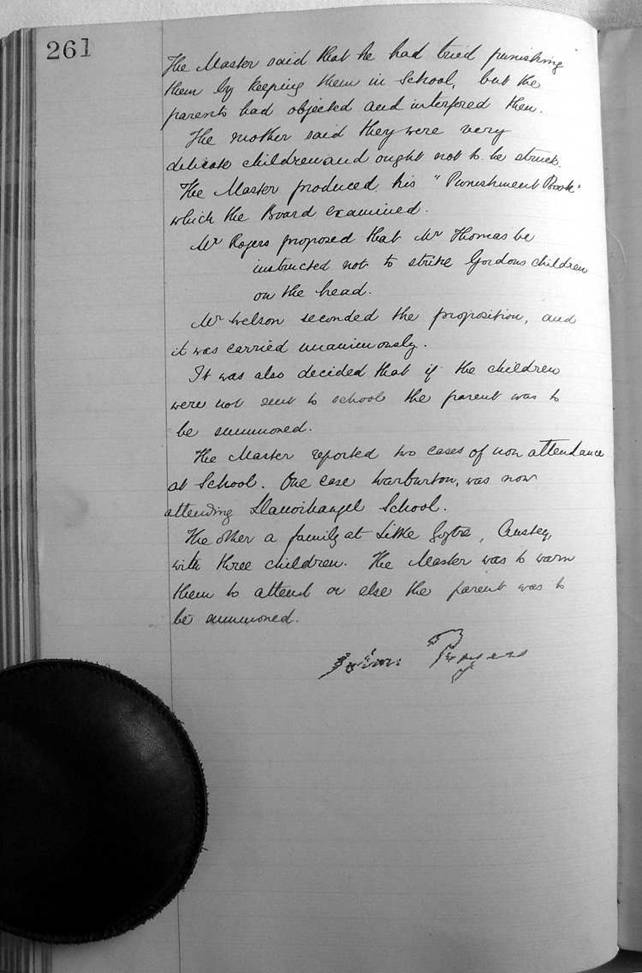 261
The Master said that he had tried punishing
them by keeping them in School, but the
parents had objected and interfered then.
The mother said they were very
delicate children and ought not to be struck.
The Master produced his "Punishment Book"
which the Board examined.
Mr Rogers proposed that Mr Thomas be
instructed not to strike Gordons children
on the head.
Mr Welson seconded the proposition, and
it was carried unanimously.
It was also decided that if the children
were not sent to school the parent was to
be summoned.
The Master reported two cases of non attendance
at School. One case Warburton, was now
attending Llanvihangel School.
The other a family at Little Goytre, Anstey,
with three children. The Master was to warn
them to attend or else the parent was to
be summoned.
Rogers